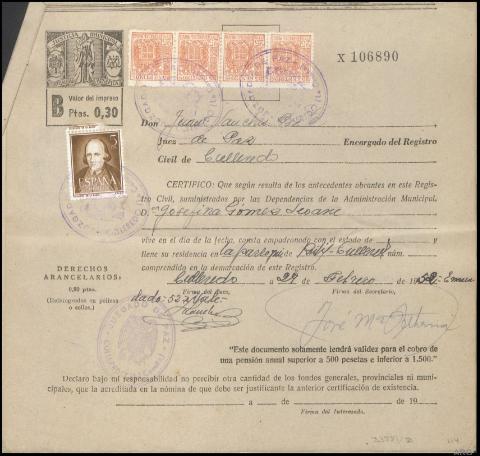 JUSTICIA MUNICIPAL
B Valor del impreso
Ptas. 0,30
X 106890
5
ESPAÑA
Don Juan Sanchez
Juez de Paz Encargado del Registro
Civil de Culleredo
CERTIFICO: Que según resulta de los antecedentes obrantes en este Regis-
tro Civil, suministrados por las Dependencias de la Administración Municipal,
D.ª Josefina Gomez Seoane
vive en el día de la fecha, consta empadronado con el estado de
y tiene su residencia en la parroquia de Culleredo núm.
comprendido en la demarcación de este Registro.
DERECHOS
ARANCELARIOS:
0,80 ptas.
(Reintegrados en pólizas
o sellos.)
Culleredo a 29 de Febrero de 1952
Firma del Juez, Firma del Secretario,
José Mª
"Este documento solamente tendrá validez para el cobro de
una pensión anual superior a 500 pesetas e inferior a 1.500."
Declaro bajo mi responsabilidad no percibir otra cantidad de los fondos generales, provinciales ni muni-
cipales, que la acreditada en la nómina de que debe ser justificante la anterior certificación de existencia.
a de de 19
Firma del Interesado.